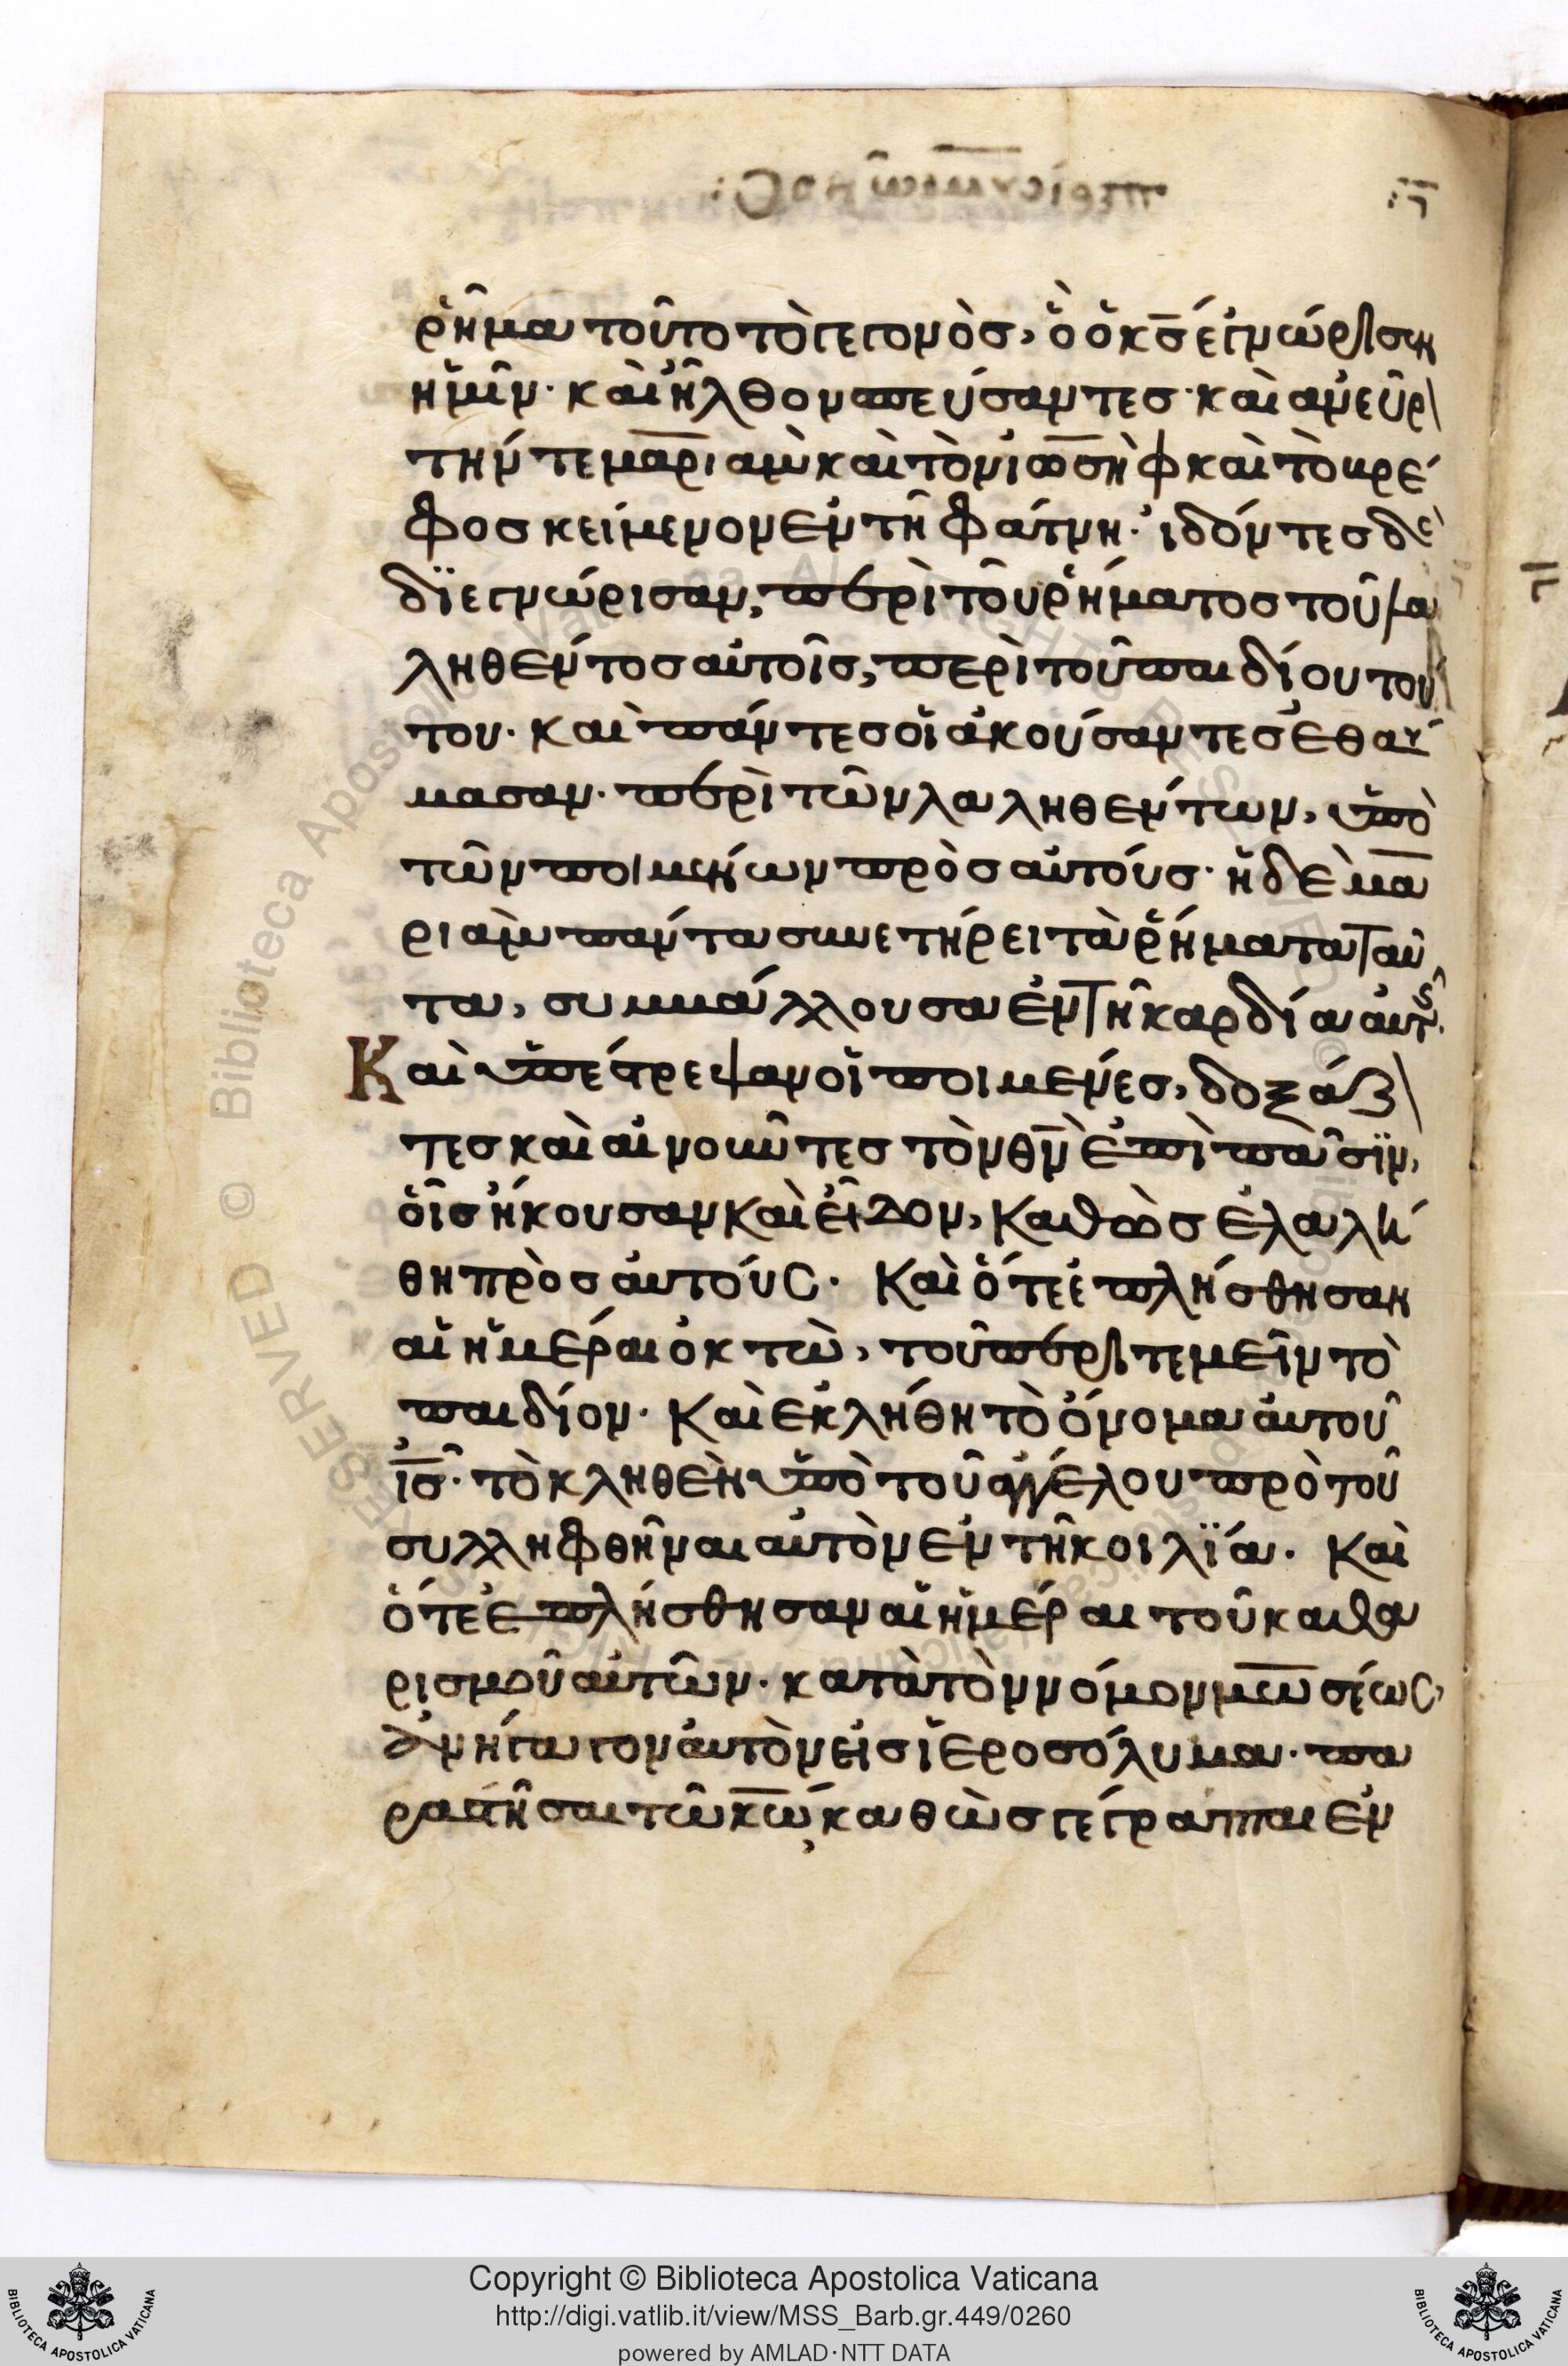 ῥῆμα τοῦτο τὸ γεγονὸς, ὃ ὁ κ̅ς̅ ἐγνώρισεν
ἡμῖν· καὶ ἦλθον σπεύσαντες· καὶ ἀνεῦρ
τήν τε μαριὰμ καὶ τὸν ἰωσὴφ καὶ τὸ βρέ
φος κείμενον ἐν τῆ φάτνη· ἰδόντες δὲ
διεγνώρισαν, περὶ τοῦ ῥήματος τοῦ λα
ληθέντος αὐτοῖς, περὶ τοῦ παιδίου τού
του· καὶ πάντες οἱ ἀκούσαντες ἐθαύ
μασαν· περὶ τῶν λαληθέντων, ὑπὸ
τῶν ποιμένων πρὸς αὐτούς· ἡ δὲ μα
ριὰμ πάντα συνετήρει τὰ ῥήματα ταῦ
τα, συμβάλλουσα ἐν τῆ καρδία αὐτῆς·
Καὶ ὑπέστρεψαν οἱ ποιμένες, δοξάζ
τες καὶ αἰνοῦντες τὸν θ̅ν̅ ἐπὶ πᾶσϊν,
οἷς ἤκουσαν καὶ εἶδον, καθὼς ἐλαλή
θη πρὸς αὐτούς· Καὶ ὅτε ἐπλήσθησαν
αἱ ἡμέραι ὀκτὼ, τοῦ περιτεμεῖν τὸ
παιδίον· Καὶ ἐκλήθη τὸ ὄνομα αὐτοῦ
ι̅ς̅· τὸ κληθὲν ὑπὸ τοῦ ἀγγέλου πρὸ τοῦ
συλληφθῆναι αὐτὸν ἐν τῆ κοιλΐα· Καὶ
ὅτε ἐπλήσθησαν αἱ ἡμέραι τοῦ καθα
ρισμοῦ αὐτῶν· κατὰ τὸν νόμον μωσέως,
ἀνήγαγον αὐτὸν εἰς ἱεροσόλυμα· πα
ραστῆσαι τῶ κ̅ω̅, καθὼς γέγραπται ἐν
Copyright © Biblioteca Apostolica Vaticana
http://digi.vatlib.it/view/MSS_Barb.gr.449/0260
powered by AMLAD·NTT DATA